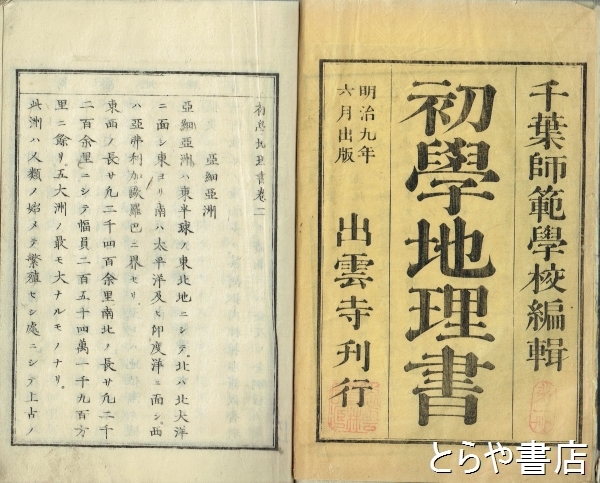 千葉師範學校編輯
初學地理書
明治九年
六月出版
出雲寺刊行
初學地理書卷二
亞細亞洲
亞細亞洲ハ東半球ノ東北地ニシテ北ハ北大洋
ニ面シ東ヨリ南ハ太平洋及ヒ印度洋ニ面シ西
ハ亞弗利加歐羅巴ニ界セリ
東西ノ長サ九二千四百余里南北ノ長サ九二千
二百余里ニシテ幅員二百五十四萬一千九百方
里ニ餘リ五大洲ノ最モ大ナルモノナリ
此洲ハ人類ノ始メテ繁殖セシ處ニシテ上古ノ
とらや書店